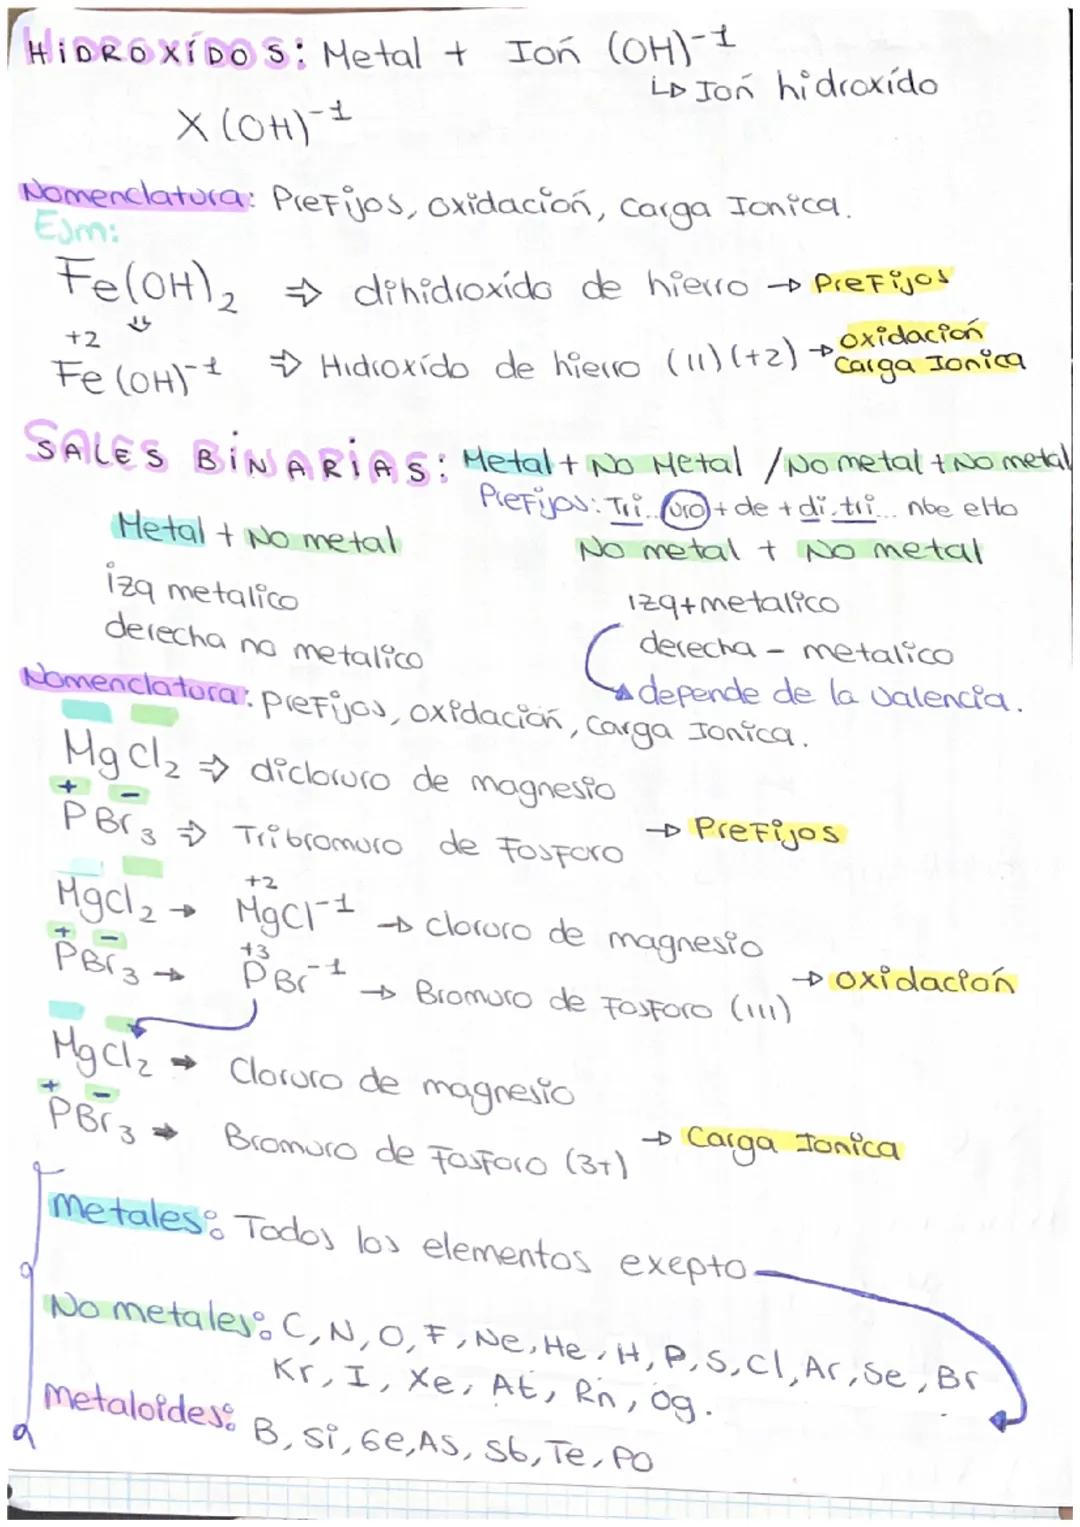 HIDROXÍDOS: Metal + Ión (OH)⁻¹
↳ Ión hidroxído
X(OH)⁻¹
Nomenclatura: Prefijos, oxidación, Carga Ionica.
EJm:
Fe(OH)₂ ⇒ dihidroxído de hierro → Prefijos
+2
Fe(OH)⁻¹ ⇒ Hidroxído de hierro (II) (+2) → oxidación
Carga Ionica
SALES BINARIAS: Metal + No Metal / No metal + No metal
Prefijos: Tri... uro + de + di, tri... nbe elto
Metal + No metal
No metal + No metal
izq metalico
izq + metalico
derecha no metalico
derecha - metalico
depende de la valencia.
Nomenclatura: prefijos, oxidación, Carga Ionica.
MgCl₂ ⇒ dicloruro de magnesio
+ -
PBr₃ ⇒ Tribromuro de Fosforo → Prefijos
+2
MgCl₂ → MgCl⁻¹ → cloruro de magnesio
+ - +3
PBr₃ → PBr⁻¹ → Bromuro de Fosforo (III) → oxidación
MgCl₂ → Cloruro de magnesio
+ -
PBr₃ → Bromuro de Fosforo (3+) → Carga Ionica
metales: Todos los elementos exepto
No metales: C, N, O, F, Ne, He, H, P, S, Cl, Ar, Se, Br
Kr, I, Xe, At, Rn, Og.
metaloides: B, Si, Ge, AS, Sb, Te, PO